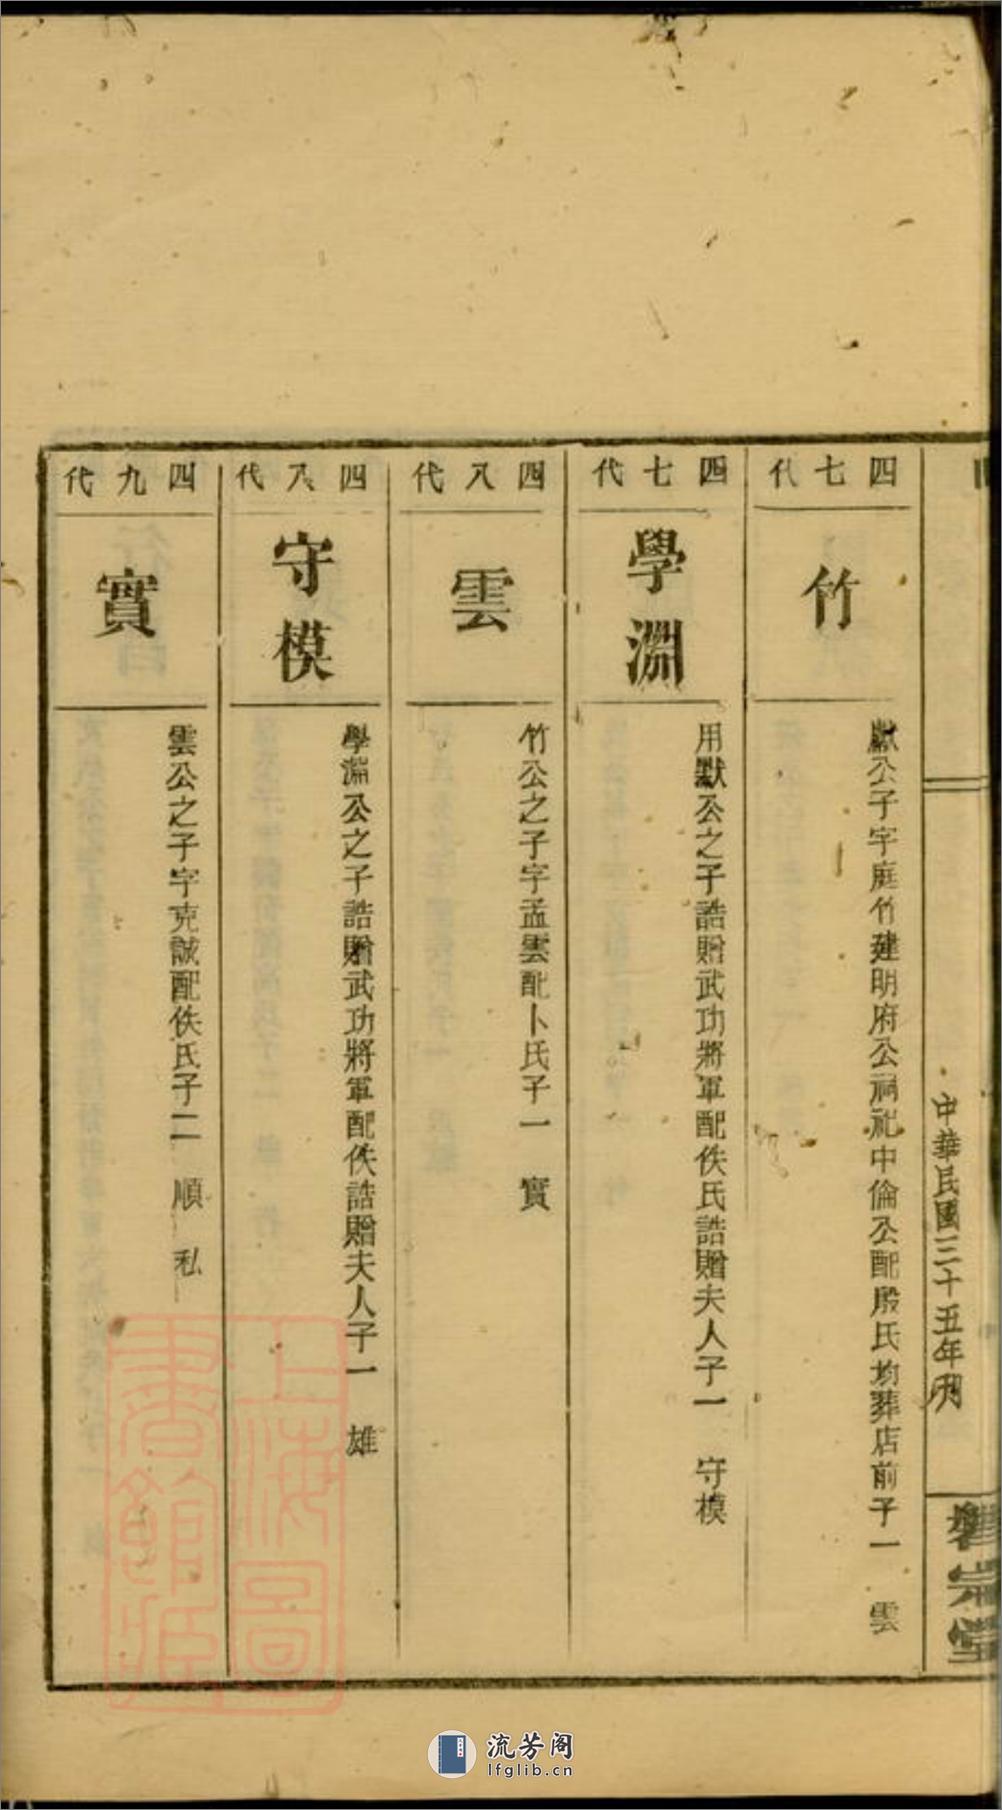 中華民國三十五年刋
四七代
竹
獻公子字庭竹建明府公祠祀中倫公配殷氏均葬店前子一 雲
四七代
學淵
用默公之子誥贈武功將軍配佚氏誥贈夫人子一 守模
四八代
雲
竹公之子字孟雲配卜氏子一 實
四八代
守模
學淵公之子誥贈武功將軍配佚誥贈夫人子一 雄
四九代
實
雲公之子字克誠配佚氏子二 順 私
上海圖
書館藏
流芳阁
lfglib.cn